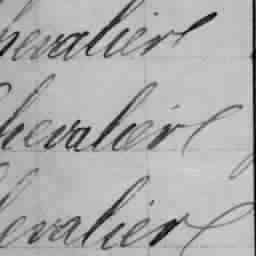 hevalier
hevalier
evalier